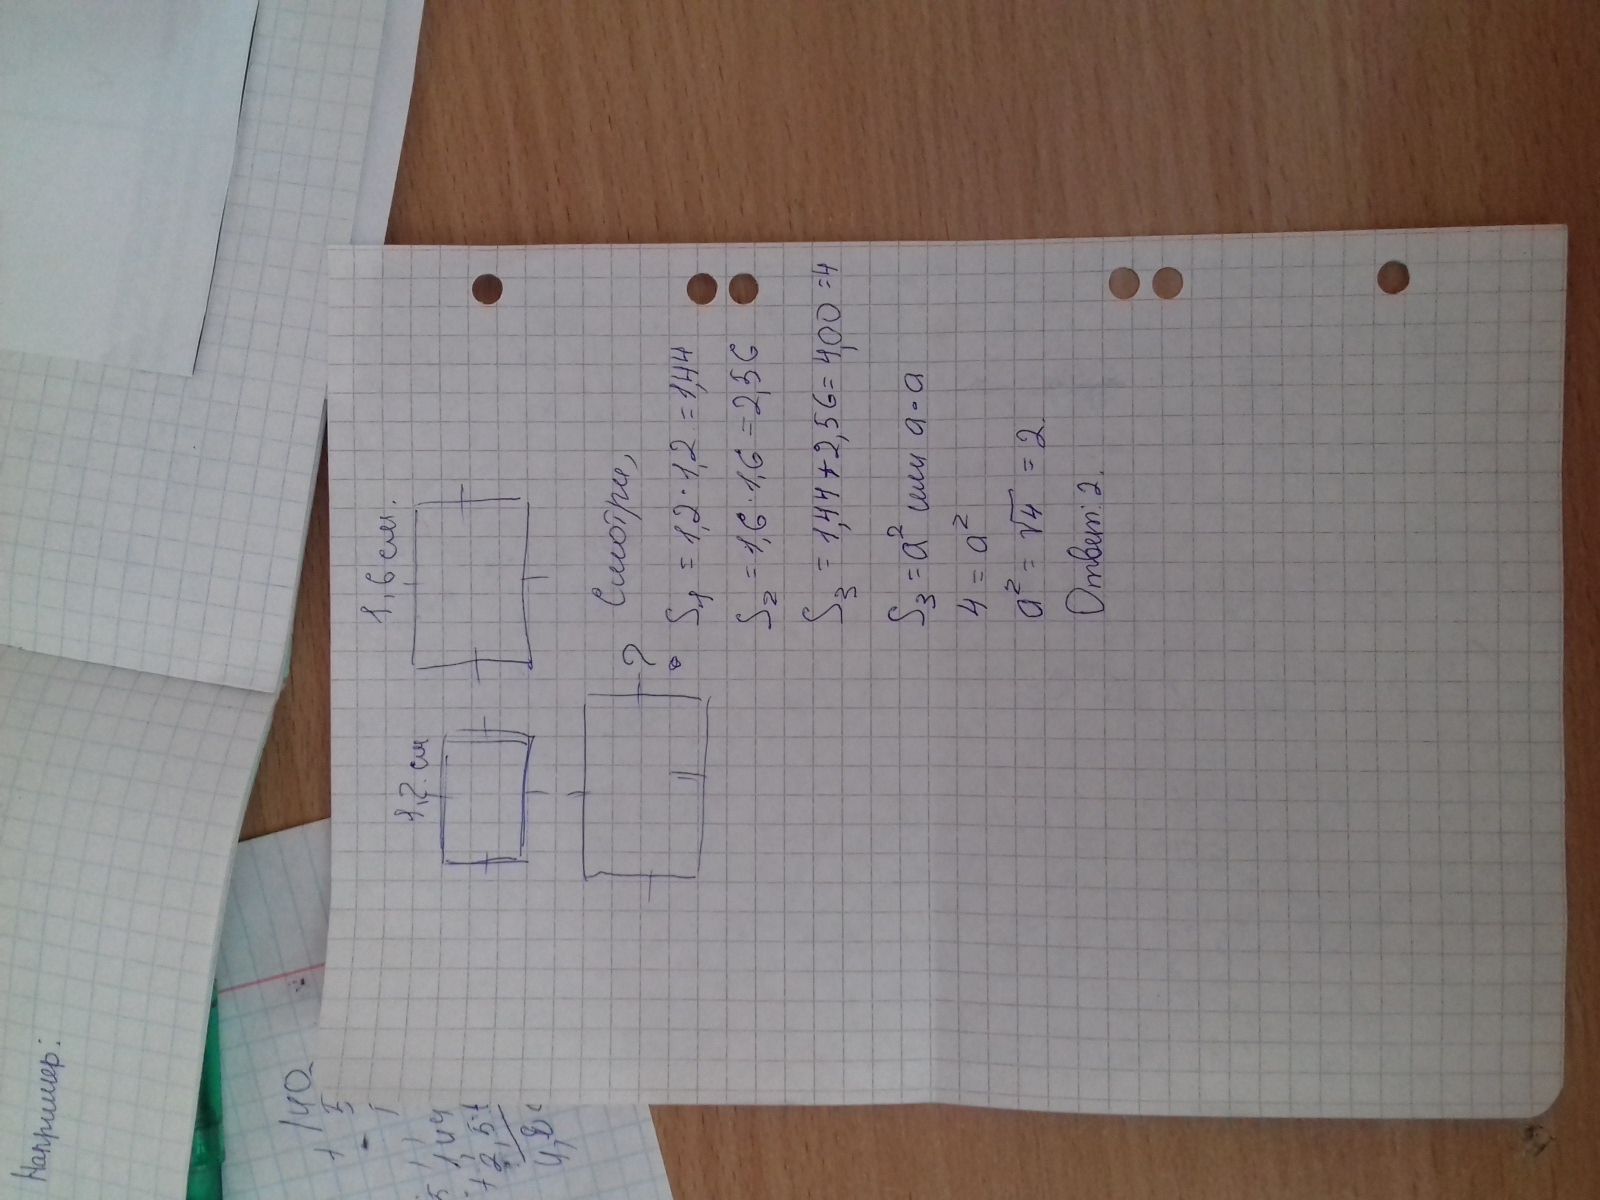 1,2 см
1,6 см.
?
Смотри,
S₁ = 1,2 · 1,2 = 1,44
S₂ = 1,6 · 1,6 = 2,56
S₃ = 1,44 + 2,56 = 4,00 = 4
S₃ = a² или a · a
4 = a²
a² = √4 = 2
Ответ: 2.
Например: